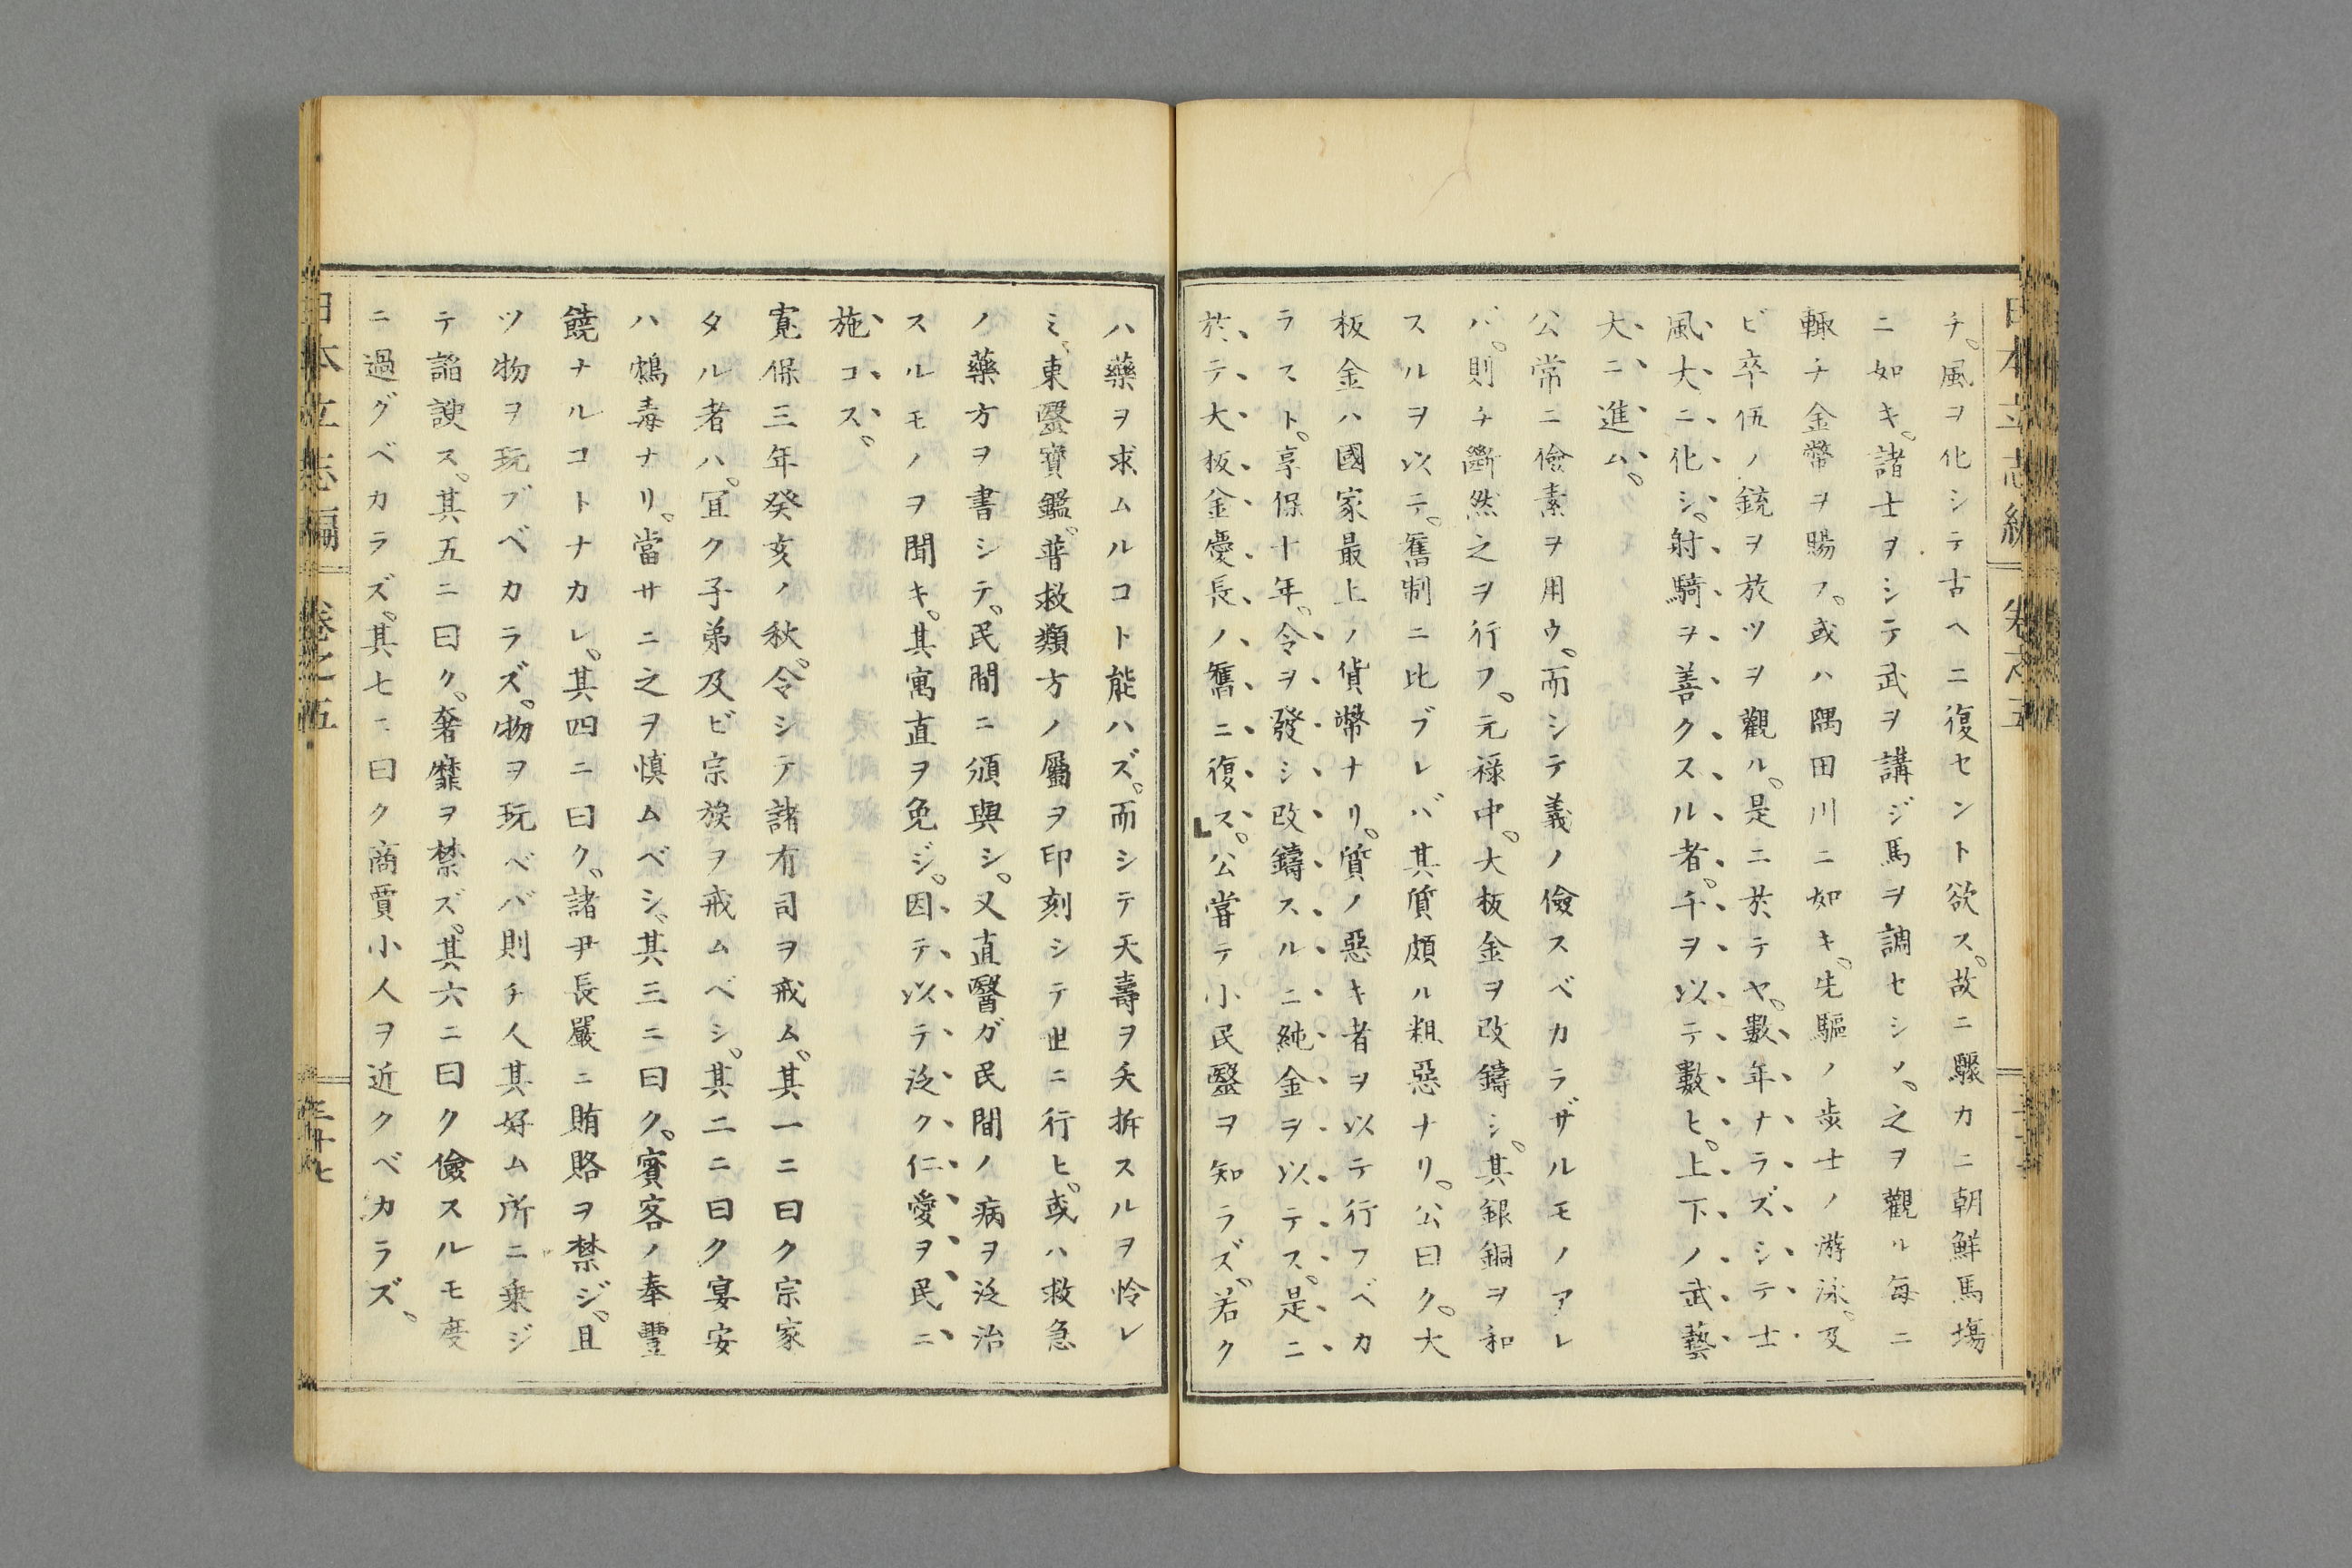 日本立志編 卷之五
チ。風ヲ化シテ古ヘニ復セント欲ス。故ニ驟カニ朝鮮馬塲
ニ如キ。諸士ヲシテ武ヲ講ジ馬ヲ調セシメ。之ヲ觀ル每ニ
輙チ金幣ヲ賜フ。或ハ隅田川ニ如キ。先驅ノ歩士ノ游泳。及
ビ卒伍ノ銃ヲ放ツヲ觀ル。是ニ於テヤ。數年ナラズシテ士
風大ニ化シ。射騎ヲ善クスル者。千ヲ以テ數ヒ。上下ノ武藝
大ニ進ム。
公常ニ儉素ヲ用ウ。而シテ義ノ儉スベカラザルモノアレ
バ。則チ斷然之ヲ行フ。元祿中。大板金ヲ改鑄シ。其銀銅ヲ和
スルヲ以テ。舊制ニ比ブレバ其質頗ル粗惡ナリ。公曰ク。大
板金ハ國家最上ノ貨幣ナリ。質ノ惡キ者ヲ以テ行フベカ
ラスト。享保十年。令ヲ發シ改鑄スルニ純金ヲ以テス。是ニ
於テ大板金慶長ノ舊ニ復ス。」公嘗テ小民毉ヲ知ラズ。若ク
ハ藥ヲ求ムルコト能ハズ。而シテ天壽ヲ夭拆スルヲ怜レ
ミ。東毉寶鑑。普救類方ノ屬ヲ印刻シテ世ニ行ヒ。或ハ救急
ノ藥方ヲ書シテ。民間ニ頒與シ。又直醫ガ民間ノ病ヲ泛治
スルモノヲ聞キ。其寓直ヲ免ジ。因テ以テ泛ク仁愛ヲ民ニ
施コス。
寛保三年癸亥ノ秋。令シテ諸有司ヲ戒ム。其一ニ曰ク宗家
タル者ハ。冝ク子弟及ビ宗族ヲ戒ムベシ。其二ニ曰ク宴安
ハ鴆毒ナリ。當サニ之ヲ慎ムベシ。其三ニ曰ク。賓客ノ奉豐
饒ナルコトナカレ。其四ニ曰ク。諸尹長嚴ニ賄賂ヲ禁ジ。且
ツ物ヲ玩ブベカラズ。物ヲ玩ベバ則チ人其好ム所ニ乗ジ
テ謟諛ス。其五ニ曰ク。奢靡ヲ禁ズ。其六ニ曰ク儉スルモ度
ニ過グベカラズ。其七ニ曰ク商賈小人ヲ近クベカラズ。
日本立志編 卷之五 三十七